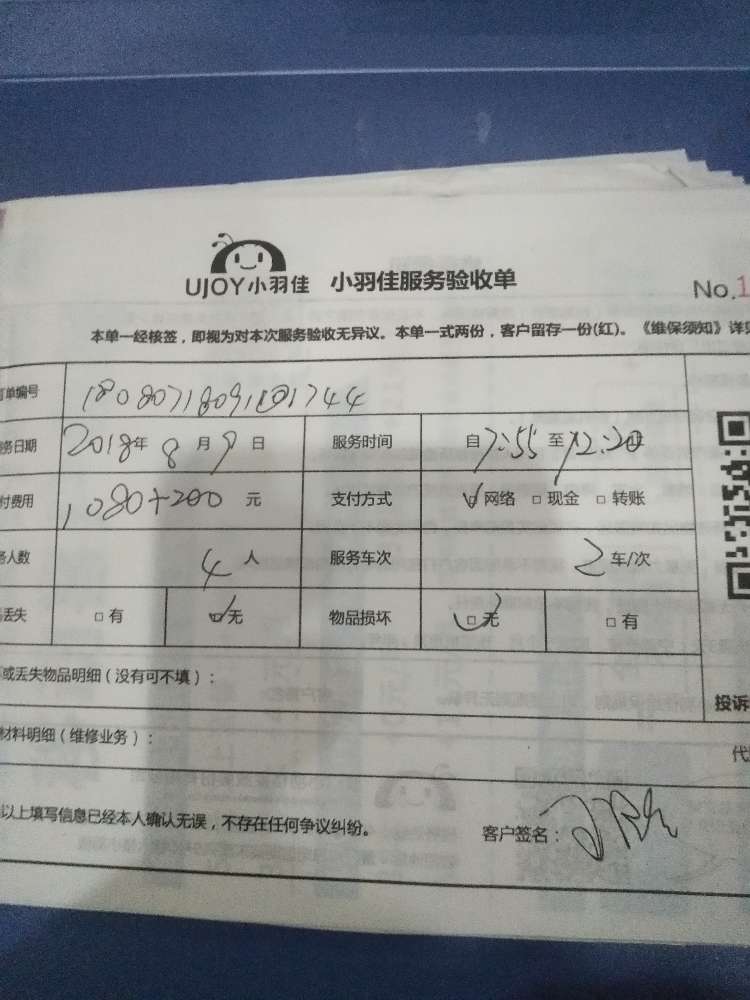 UJOY小羽佳 小羽佳服务验收单
No.1
本单一经核签，即视为对本次服务验收无异议。本单一式两份，客户留存一份(红)。《维保须知》详见
订单编号
务日期 2018年 8 月 9 日 服务时间 自7:55 至12:20
付费用 1080+200 元 支付方式 网络 □ 现金 □ 转账
人数 4 人 服务车次 2 车/次
丢失 □ 有 □ 无 物品损坏 □ 无 □ 有
或丢失物品明细（没有可不填）：
投诉
材料明细（维修业务）：
以上填写信息已经本人确认无误，不存在任何争议纠纷。 客户签名：